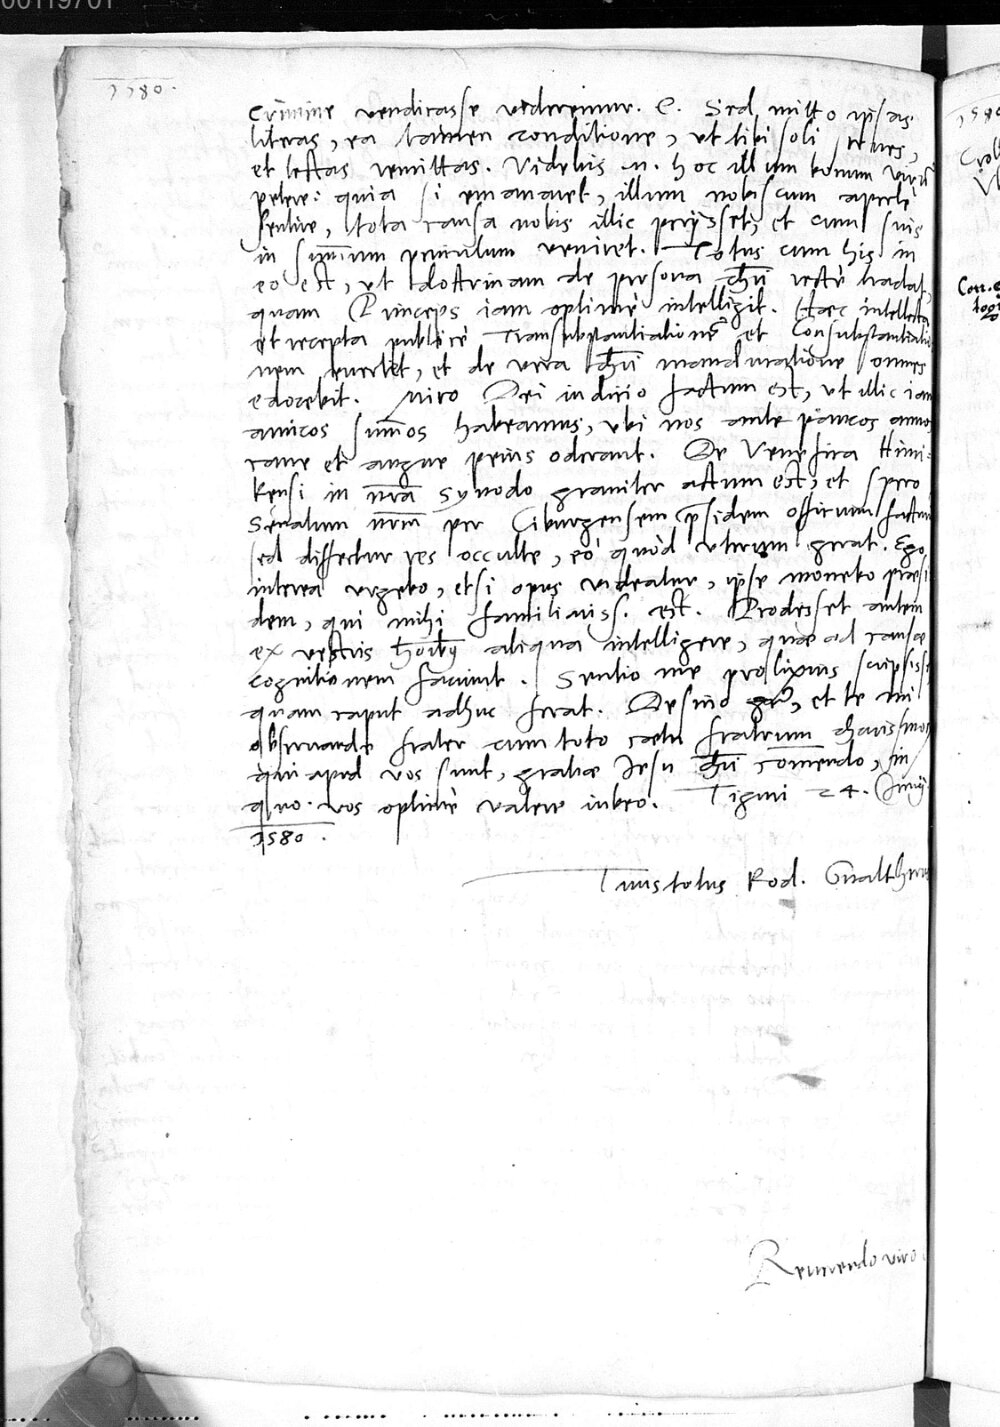 00119701
1580.
crimine vendicasse videremur. C. Sed mitto ipsas
literas, ea tamen conditione, ut tibi soli serues,
et lectas remittas. Videbis n. hoc illum bonum virũ
petere: quia si emanaret, illum nobiscum apertè
sentire, tota causa nobis illic perijsset, et cum suis
in sum̃um periculum veniret. Totus cum his in
eo est, ut doctrinam de persona Ch̃ri rectè tradat,
quam Princeps iam optimè intelligit. Haec intellecta
et recepta publicè Transubstantiationẽ et Consubstantiatio
nem euertet, et de vera Ch̃ri manducatione omnes
edocebit. Miro Dei iudicio factum est, ut illic iam
amicos sum̃os habeamus, ubi nos ante paucos annos
cane et angue peius oderant. De Venefica
in nr̃a Synodo grauiter actum est, et spero
Senatum nr̃m per Ciburgensem p̃sidem officium factur
sed differtur res occulte, eò quòd
interea urgebo, et si opus videatur, ipse monebo praesi
dem, qui mihi familiariss. est. Prodesset autem
ex vestris aliqua intelligere, quae ad causae
cognitionem faciunt. Sentio me prolixius scripsisse
quam caput adhuc ferat. Desino et te mi
obseruande frater cum toto coetu fratrum charissimor
qui apud vos sunt, gratiae Jesu Ch̃ri com̃endo, in
quo vos optimè valere iubeo. Tiguri 24. Junij
1580.
Tuus totus Rod. Gualtherus
Reuerendo viro
1580